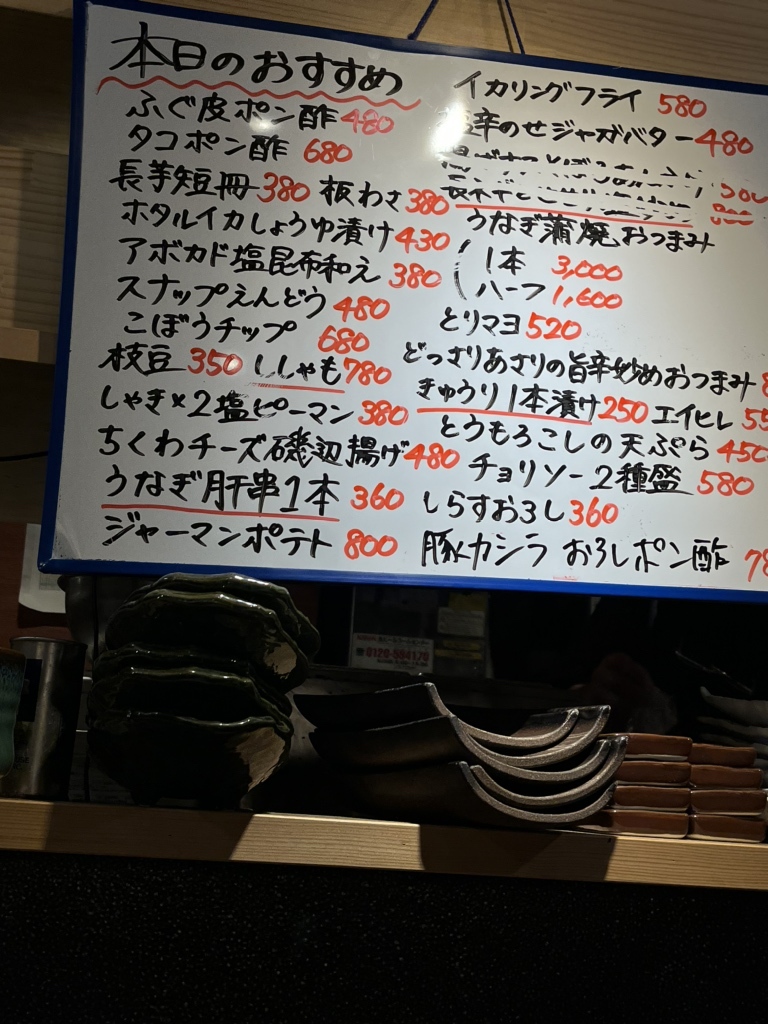 本日のおすすめ
ふぐ皮ポン酢 480
タコポン酢 680
長芋短冊 380 板わさ 380
ホタルイカしょうゆ漬け 430
アボカド塩昆布和え 380
スナップえんどう 480
こぼうチップ 680
枝豆 350 ししゃも 780
しゃき×2塩ピーマン 380
ちくわチーズ磯辺揚げ 480
うなぎ肝串1本 360
ジャーマンポテト 800
イカリングフライ 580
辛のせジャガバター 480
うなぎ蒲焼おつまみ
1本 3,000
ハーフ 1,600
とりマヨ 520
どっさりあさりの旨辛炒めおつまみ
きゅうり1本漬け 250 エイヒレ
とうもろこしの天ぷら 450
チョリソー2種盛 580
しらすおろし 360
豚カシラ おろしポン酢